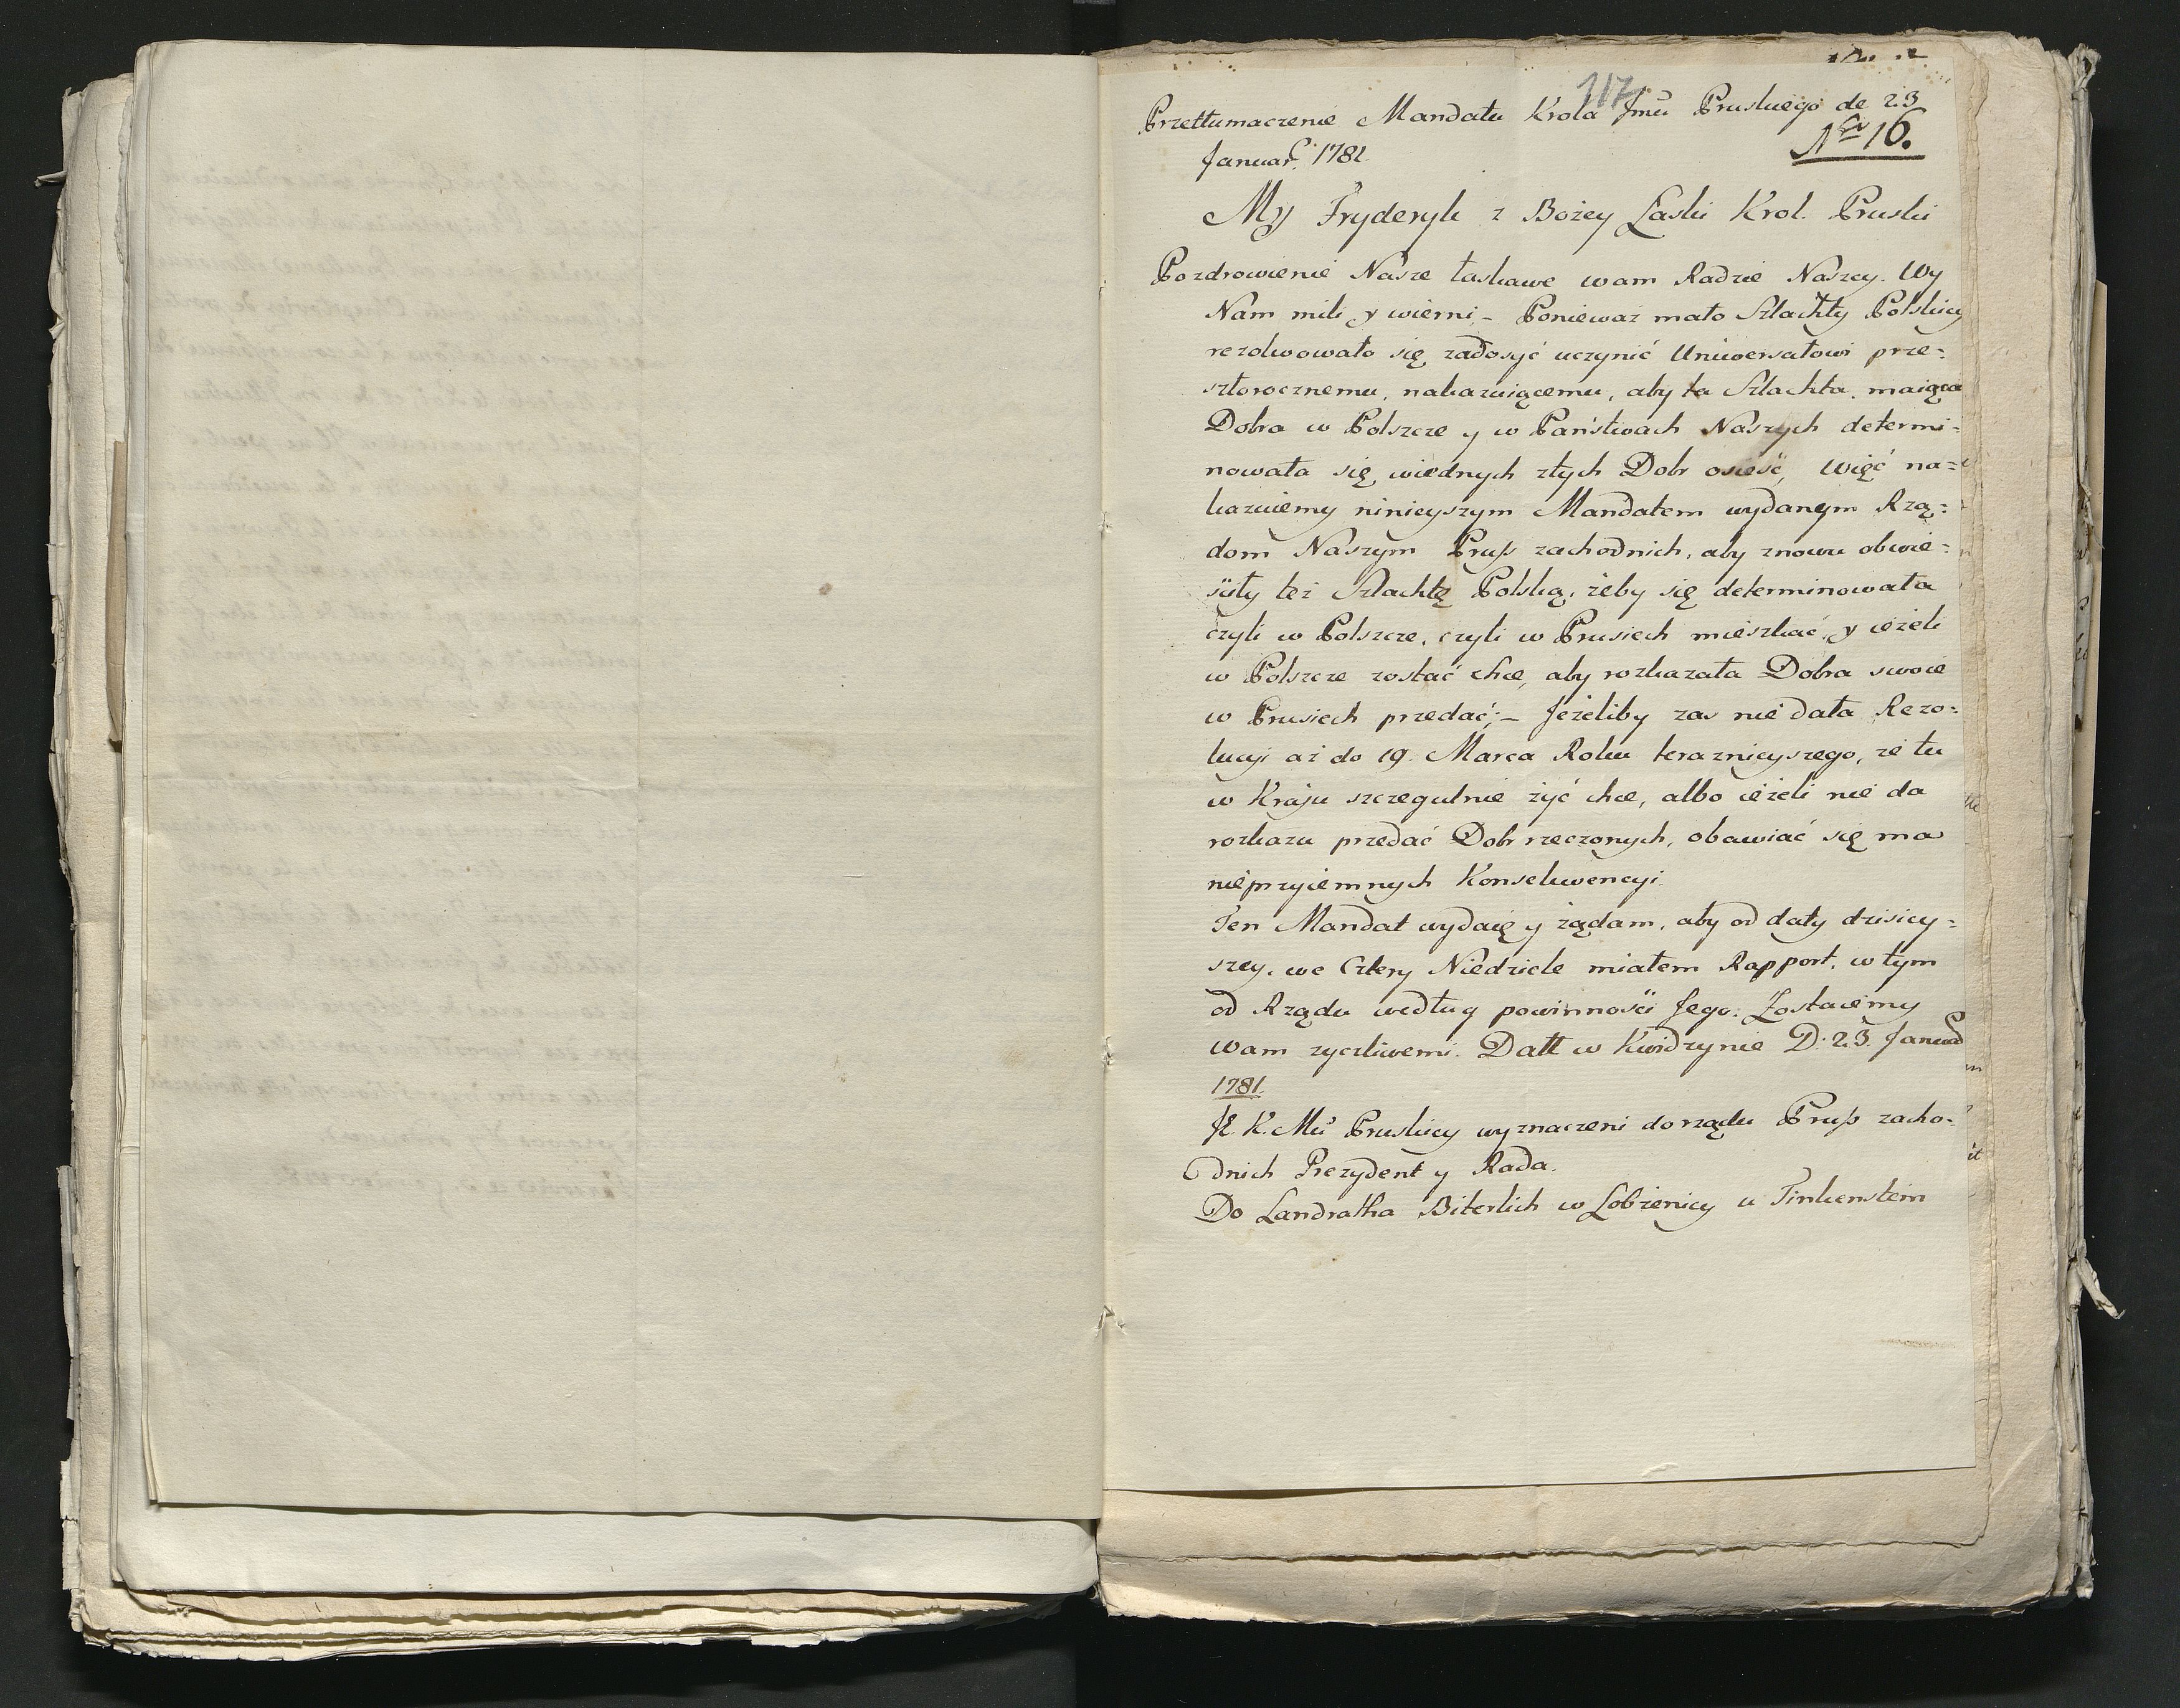 117
Przetłumaczenie Mandatu Krola Jmći Pruskiego de 23
Nro 16.
Januar. 1781.
My Fryderyk z Bożey Łaski Krol Pruski
Pozdrowienie Nasze łaskawe wam Radzie Naszey. Wy
Nam mili y wierni – Ponieważ mało Szlachty Polskiey
rezolwowało się zadosyć uczynić Uniwersałowi prze=
szłorocznemu, nakazuiącemu, aby ta Szlachta, maiąca
Dobra w Polszcze y w Państwach Naszych determi=
nowała się, wiednych z tych Dobr osieść, Więć na=
kazuiemy ninieyszym Mandatem wydanym Rzą=
dom Naszym Prusſ zachodnich, aby znowu obwie=
siiły też Szlachtę Polską, żeby się determinowała
czyli w Polszcze, czyli w Prusiech mieszkać, y ieżeli
w Polszcze zostać chce, aby rozkazała Dobra swoie
w Prusiech przedać; – Jeżeliby zas nie dała Rezo=
lucyi aż do 19. Marca Roku teraznieyszego, że tu
w Kraju szczegulnie żyć chce, albo ieżeli nie da
rozkazu przedać Dobr rzeczonych, obawiać się ma
nieprzyiemnych Konsekwencyi.
Ten Mandat wydaię y żądam, aby od daty dzisiey=
szey, we Cztery Niedziele miałem Rapport, w tym
od Rządu według powinnośći Jego. Zostaiemy
wam zyczliwemi. Datt w Kwidzynie D. 23. Januar
1781.
J. K. Mći Pruskiey wyznaczeni do rządu Prusſ zacho=
dnich Prezydent y Rada.
Do Landratha Biterlich w Łobżenicy u Finkenstein